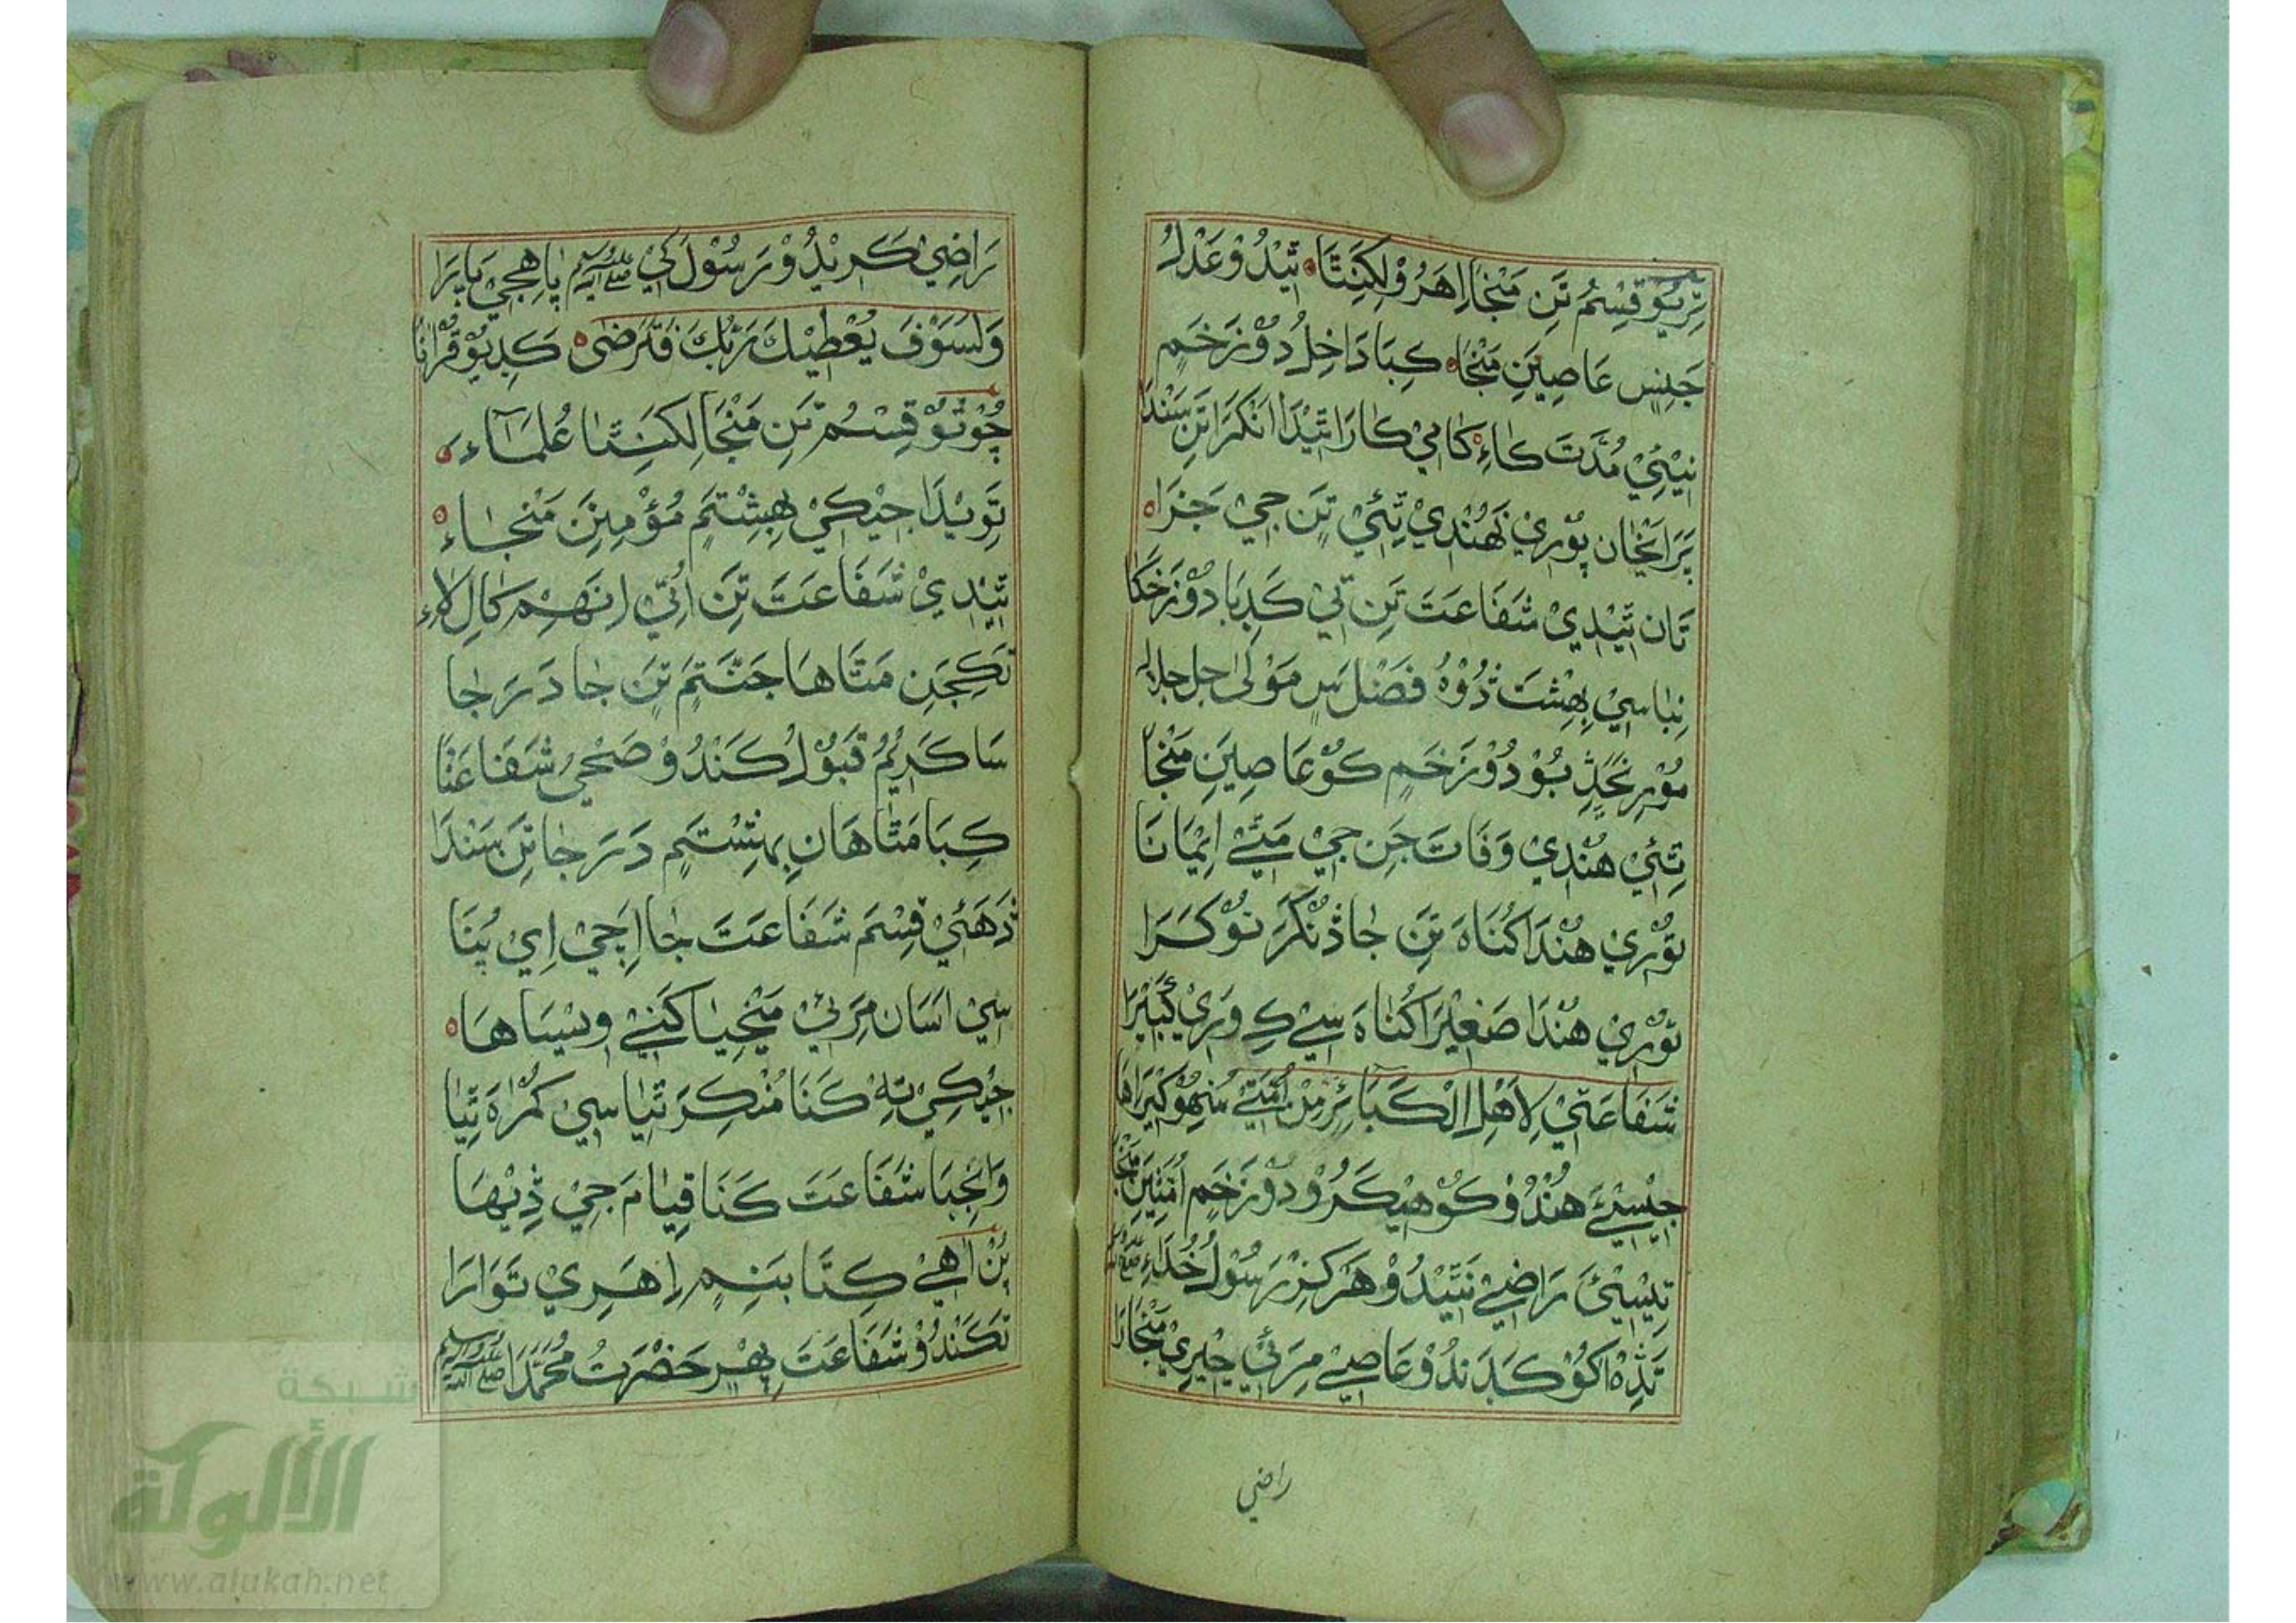 تِرِيُوْ قِسْمُ تَنِ مَنْجَا اِهَرُوْ لِكِنَّتَا ٥ تِيَنْدُوْ عَدْلُ
جَنِسِ عَاصِيَنِ مَنْجَا ٥ كِبَا دَاخِلُ دُوْزَخَمِ
نِيْئِيْ مُدَّتَ كَاءِ ٥ كَامِيْ كَارَا تِيَنْدَا اَنْكَرَا تَنِ سَنْدَا
پَرَايَخَان پُوْرِيْ نَهُنْدِيْ تِئِيْ تَنِ جِيْ جَزَا ٥
تَان تِيَنْدِيْ شَفَاعَتَ تَنِ تِيْ كَڍِبَا دُوْزَخَكَا
نِبَا سِيْ بِهِشْتَ ڎُوْهُ فَضْلَ سِ مَوْلٰى جل جلاله
مُوْرِ نَڇَڎِبُوْ دُوْزَخَمِ كُوْ عَاصِيَنِ مَنْجَا
تِئِيْ هُنْدِيْ وَفَاتَ جَنِ جِيْ مَتَّيْ اِيْمَانَا
تُوْرِيْ هُنْدَا كُنَاهَ تَنِ جَا ڎُنْكَرَ تُوْ كَرَا
تُوْرِيْ هُنْدَا صَغِيْرَا كُنَاهَ سِيْ كِ وَرِيْ كَبِيْرَا
شَفَاعَتِيْ لِاَهْلِ الْكَبَائِرِ مِنْ اُمَّتِيْ
جِيْسِيْئَ هُنْدُوْ كُوْ هِيْكَرُوْ دُوْزَخَمِ اُمَّتِيَنِ مَنْجَا
تِيْسِيْئَ رَاضِيْ نَتِيَنْدُوْ هَرْكِزْ رَسُوْلُ خُدَاءِ صلى الله
تَڎِهْ اَكُوْ كَڍَنْدُوْ عَاصِيْ مِرَئِيْ جِيْرِيْ مَنْجَارَا
راضي
رَاضِيْ كَرِيْنْدُوْ رَسُوْلَ كِيْ صلى الله عليه وسلم پَاهِجِيْ بَاپَرَا
وَلَسَوْفَ يُعْطِيْكَ رَبُّكَ فَتَرْضٰى ٥ كَڍِيُوْ قُرْاٰنَا
چُوْتُوْ قِسْمُ تَنِ مَنْجَا لِكِنَّتَا عُلَمَاءَ ٥
تَوِيْنْدَا جِيْكِيْ بِهِشْتَمِ مُؤْمِنَنِ مَنْجَاءِ ٥
تِيَنْدِيْ شَفَاعَتَ تَنِ اُتِيْ اِنَهِمْ كَالِ لَاءِ
تَكِجَنِ مَتَاهَا جَنَّتَمِ تَنِ جَا دَرَجَا
سَا كَرِيْمُ قَبُوْلُ كَنْدُوْ صَحِيْ شَفَاعَتَا
كِبَا مَتَاهَان بِهِشْتَمِ دَرَجَا تَنِ سَنْدَا
ڎَهَئِيْ قِسْمَ شَفَاعَتَ جَا اِجِيْ اِيْ پُنَا
سِيْ اَسَان مِرَئِيْ مَنْڃِيَا كَنِيْ وِيْسَاهَا ٥
جِيْكِيْ تِهْ كَنَا مُنْكِرَ تِيَا سِيْ كُمْرَاهَ تِيَا
وَانْجِبَا شَفَاعَتَ كَنَا قِيَامَ جِيْ ڎِيْهَا
پُنْ اٰهِيْ كِتَابَنِمِ اِهَرِيْ تَوَارَا
تَكَنْدُوْ شَفَاعَتَ پِهْرِ حَضْرَتُ مُحَمَّدَا صلى الله عليه وسلم
شبكة
الألوكة
www.alukah.net